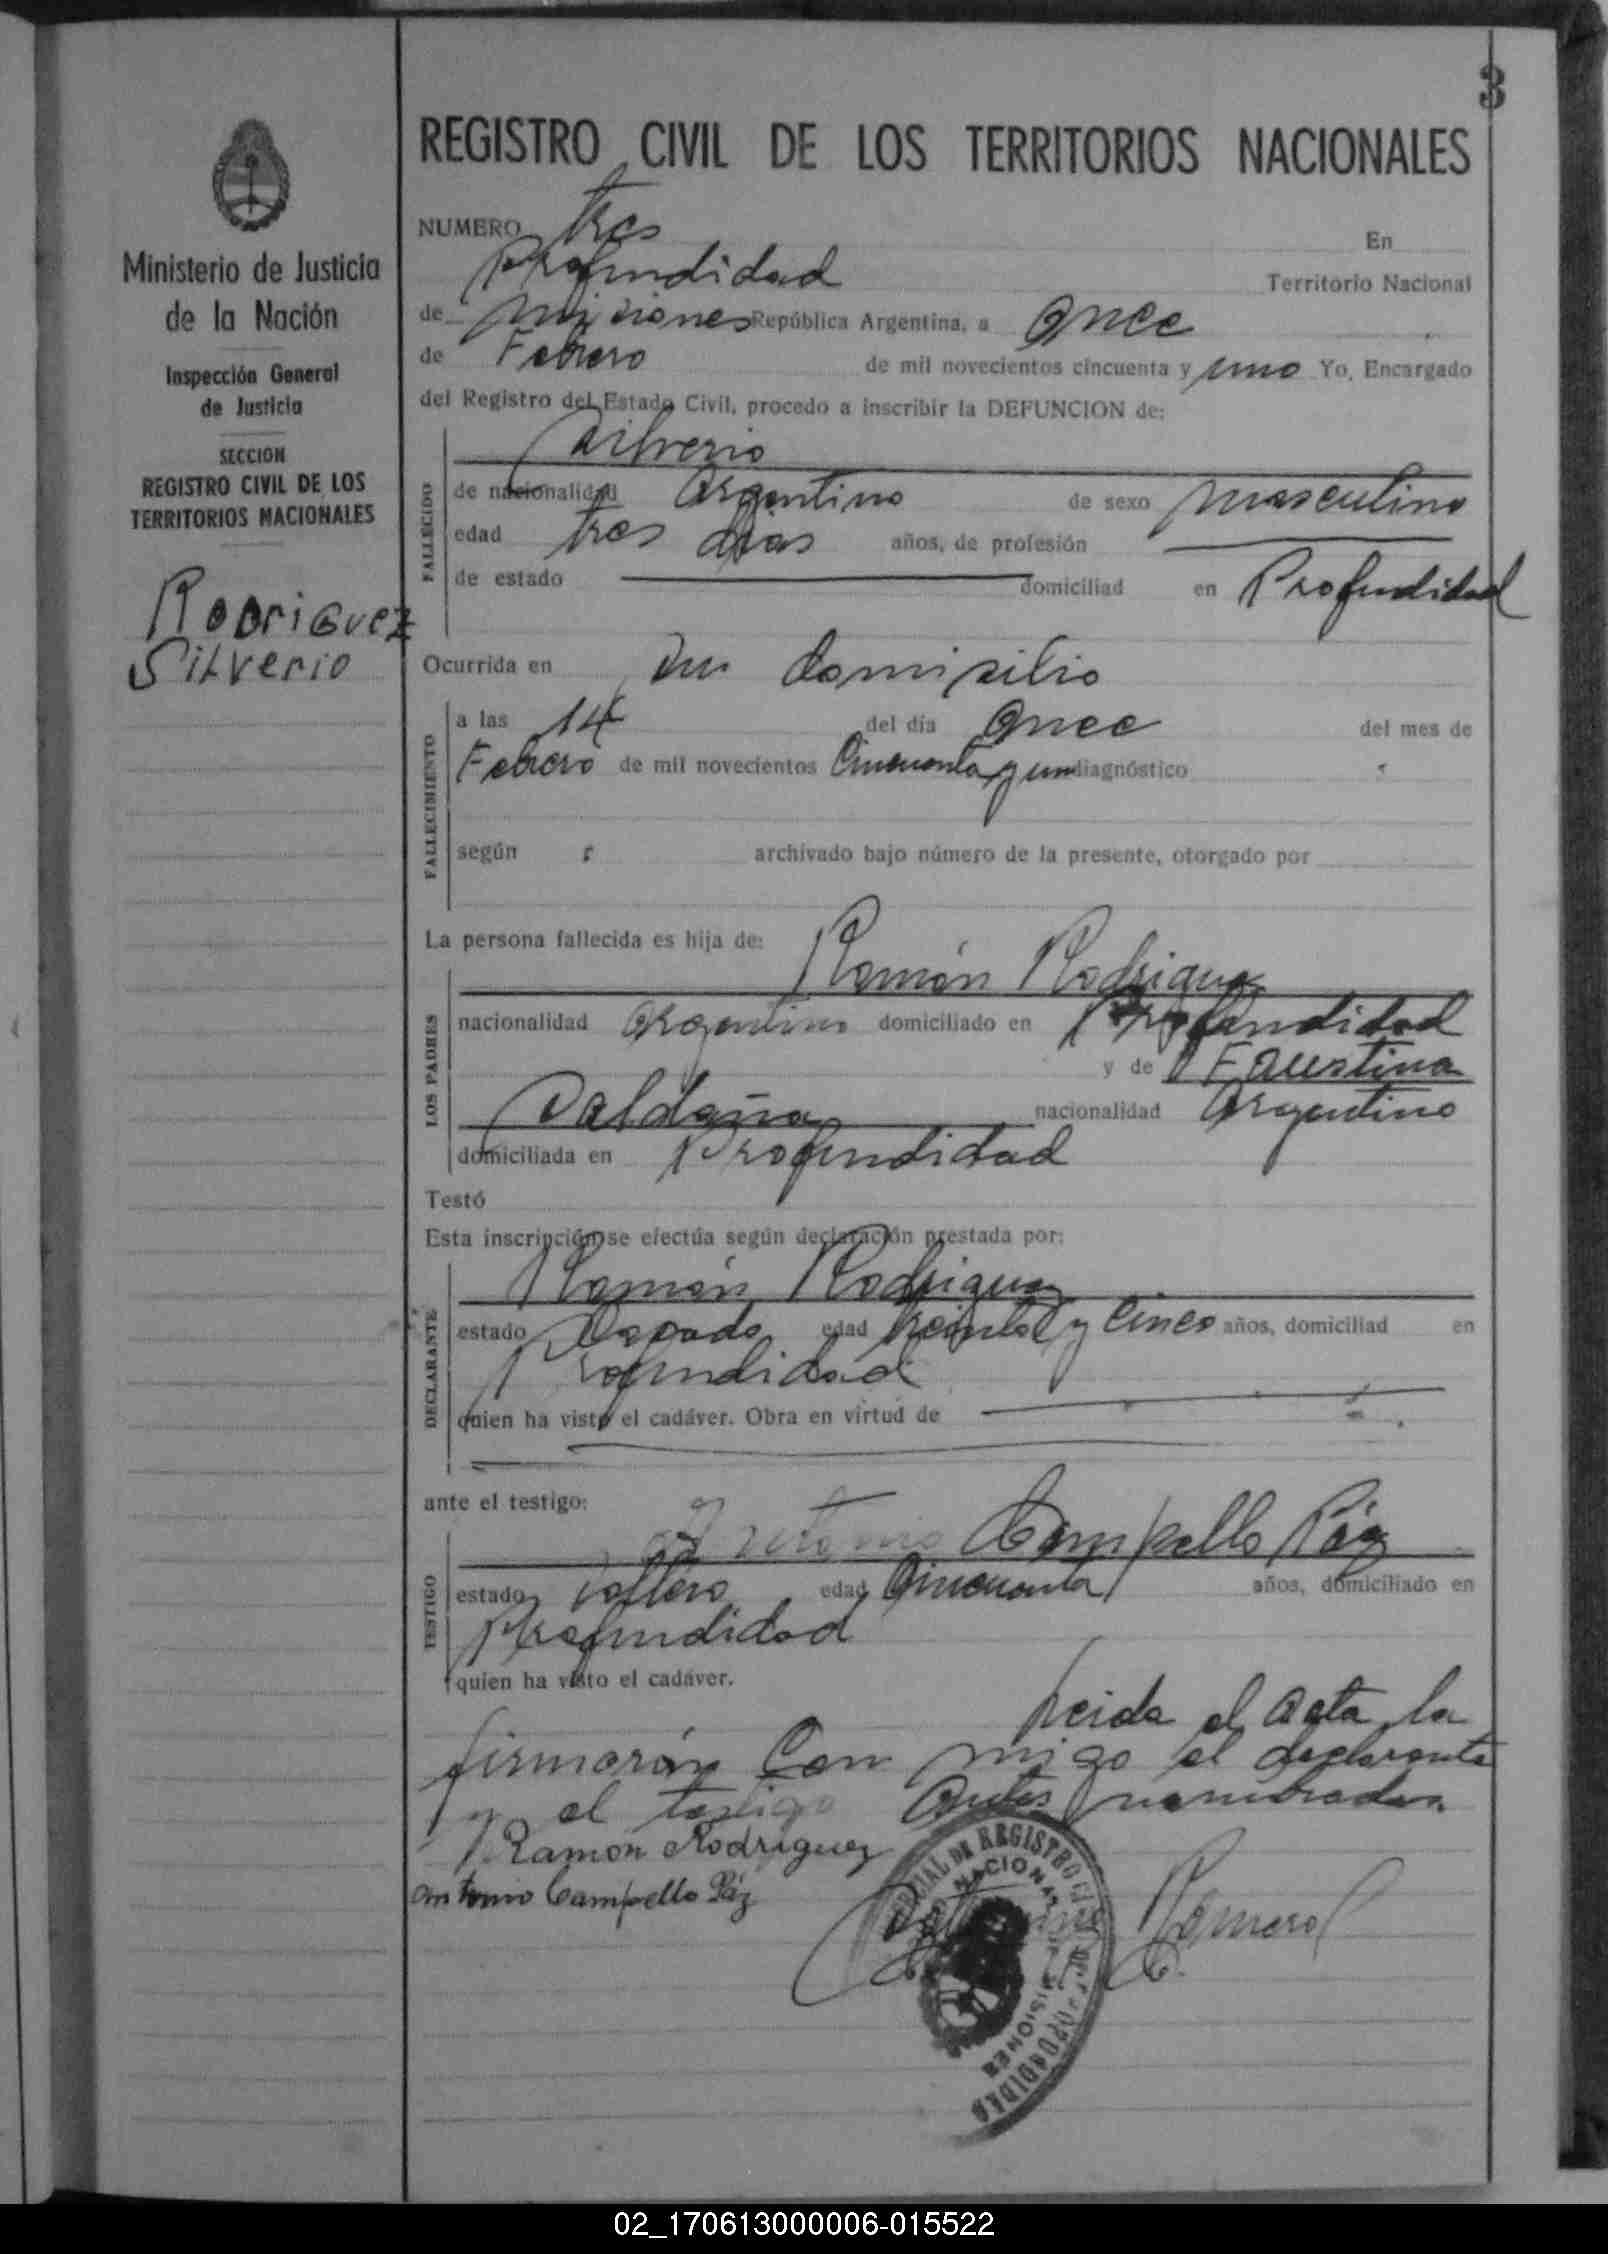 3
REGISTRO CIVIL DE LOS TERRITORIOS NACIONALES
NUMERO tres En
Profundidad Territorio Nacional
de Misiones República Argentina, a Once
de Febrero de mil novecientos cincuenta y uno Yo, Encargado
del Registro del Estado Civil, procedo a inscribir la DEFUNCION de:
Silverio
FALLECIDO
de nacionalidad Argentino de sexo masculino
edad tres dias años, de profesión
de estado domiciliad en Profundidad
Ocurrida en su domisilio
FALLECIMIENTO
a las 14 del día Once del mes de
Febrero de mil novecientos Cincuenta y un diagnóstico
según archivado bajo número de la presente, otorgado por
La persona fallecida es hija de:
Ramón Rodriguez
LOS PADRES
nacionalidad Argentino domiciliado en Profundidad
y de Faustina
Saldaña nacionalidad Argentino
domiciliada en Profundidad
Testó
Esta inscripción se efectúa según declaración prestada por:
Ramón Rodriguez
DECLARANTE
estado Casado edad treinta y cinco años, domiciliad en
Profundidad
quien ha visto el cadáver. Obra en virtud de
ante el testigo:
Antonio Campello Páz
TESTIGO
estado Soltero edad Cincuenta años, domiciliado en
Profundidad
quien ha visto el cadáver.
Leida el Acta la
firmarán Con migo el declarante
y el testigo Antes nombrados.
Ramon Rodriguez
Antonio Campello Páz
Romero
Ministerio de Justicia
de la Nación
Inspección General
de Justicia
SECCION
REGISTRO CIVIL DE LOS
TERRITORIOS NACIONALES
Rodriguez
Silverio
02_170613000006-015522